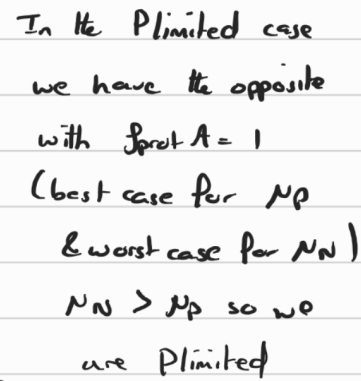 In the Plimited case
we have the opposite
with fprot A = 1
(best case for μp
& worst case for μN)
μN > μp so we
are Plimited